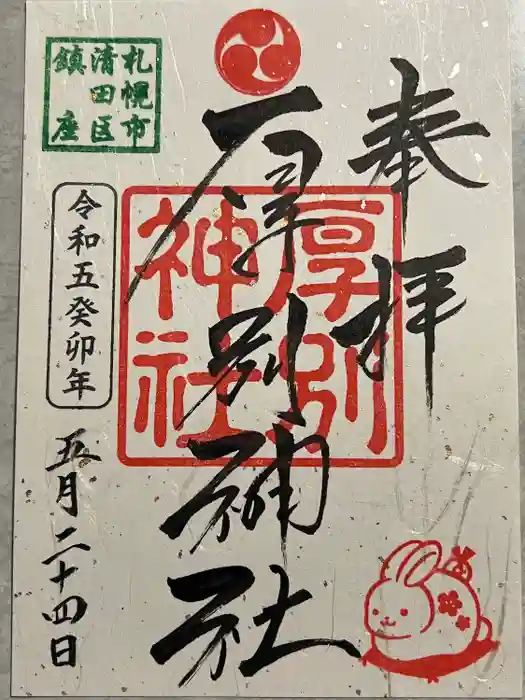 奉拝
厚別神社
厚別
神社
札幌市
清田区
鎮座
令和五癸卯年
五月二十四日